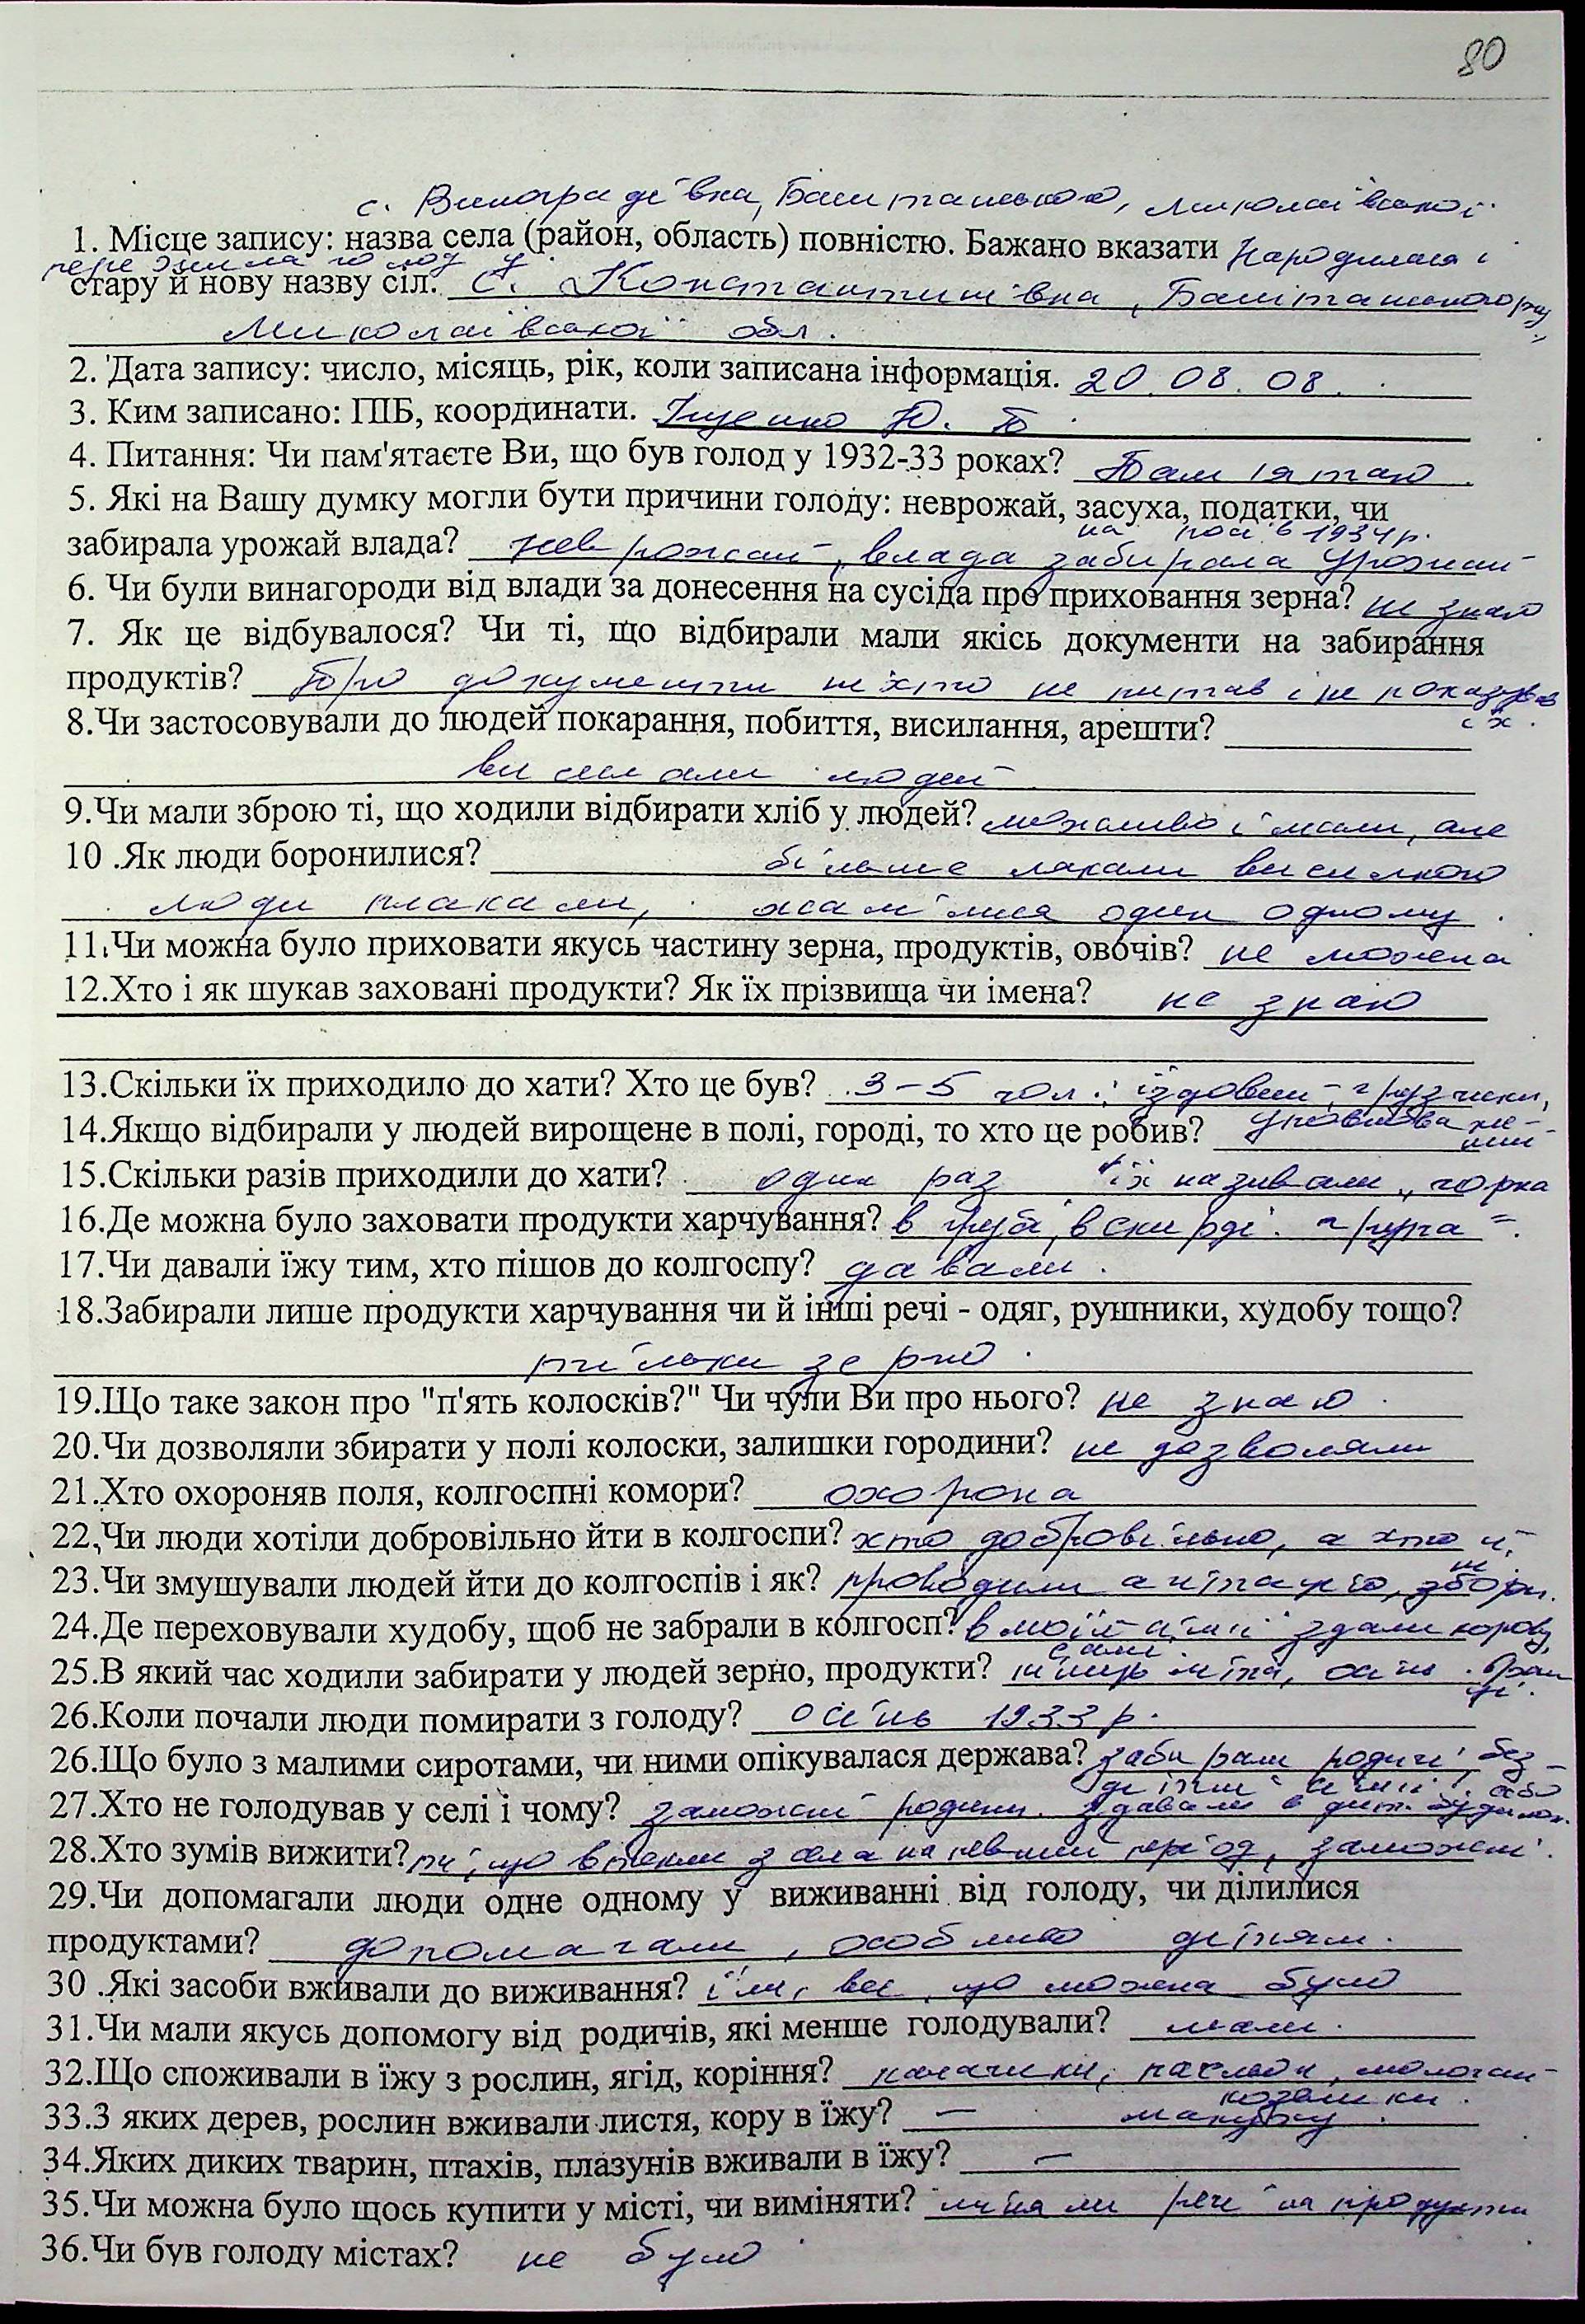 80
с. Виноградівка, Баштанського, Миколаївської
1. Місце запису: назва села (район, область) повністю. Бажано вказати Народилася і
пережила голод у
стару й нову назву сіл. с. Константинівка, Баштанського р-ну
Миколаївської обл.
2. Дата запису: число, місяць, рік, коли записана інформація. 20.08.08.
3. Ким записано: ПІБ, координати. Іщенко Ю. П
4. Питання: Чи пам'ятаєте Ви, що був голод у 1932-33 роках? Пам'ятаю.
5. Які на Вашу думку могли бути причини голоду: неврожай, засуха, податки, чи
на 1934 р.
забирала урожай влада? неврожай, влада забирала урожай
6. Чи були винагороди від влади за донесення на сусіда про приховання зерна? не знаю
7. Як це відбувалося? Чи ті, що відбирали мали якісь документи на забирання
продуктів? Про документи ніхто не питав і не показував
їх.
8.Чи застосовували до людей покарання, побиття, висилання, арешти?
висилали людей
9.Чи мали зброю ті, що ходили відбирати хліб у людей? можливо і мали, але
10 .Як люди боронилися? більше лякали висилкою
люди плакали, жалілися один одному.
11.Чи можна було приховати якусь частину зерна, продуктів, овочів? не можна
12.Хто і як шукав заховані продукти? Як їх прізвища чи імена? не знаю
13.Скільки їх приходило до хати? Хто це був? 3-5 чол.: їздовий, грузчики,
14.Якщо відбирали у людей вирощене в полі, городі, то хто це робив? уповноваже-
ний
15.Скільки разів приходили до хати? один раз їх називали „чорна
16.Де можна було заховати продукти харчування? в грубі, в скирді. група".
17.Чи давали їжу тим, хто пішов до колгоспу? давали.
18.Забирали лише продукти харчування чи й інші речі - одяг, рушники, худобу тощо?
тільки зерно.
19.Що таке закон про "п'ять колосків?" Чи чули Ви про нього? не знаю.
20.Чи дозволяли збирати у полі колоски, залишки городини? не дозволяли
21.Хто охороняв поля, колгоспні комори? охорона
22.Чи люди хотіли добровільно йти в колгоспи? хто добровільно, а хто й
ні.
23.Чи змушували людей йти до колгоспів і як? проводили агітацію, збори.
24.Де переховували худобу, щоб не забрали в колгосп? в моїй сім'ї здали корову
самі.
25.В який час ходили забирати у людей зерно, продукти? кінець літа, осінь.
26.Коли почали люди помирати з голоду? осінь 1933 р.
26.Що було з малими сиротами, чи ними опікувалася держава? забирали родичі, без-
дітні сім'ї, або
27.Хто не голодував у селі і чому? заможні родини. здавали в дит. будинок.
28.Хто зумів вижити? ті, що втекли з села на певний період, заможні.
29.Чи допомагали люди одне одному у виживанні від голоду, чи ділилися
продуктами? допомагали, особливо дітям.
30 .Які засоби вживали до виживання? їли, все, що можна було
31.Чи мали якусь допомогу від родичів, які менше голодували? мали.
32.Що споживали в їжу з рослин, ягід, коріння? калачики, паслін, молочай
козелики.
33.З яких дерев, рослин вживали листя, кору в їжу? — макуху.
34.Яких диких тварин, птахів, плазунів вживали в їжу? —
35.Чи можна було щось купити у місті, чи виміняти? міняли речі на продукти
36.Чи був голоду містах? не було